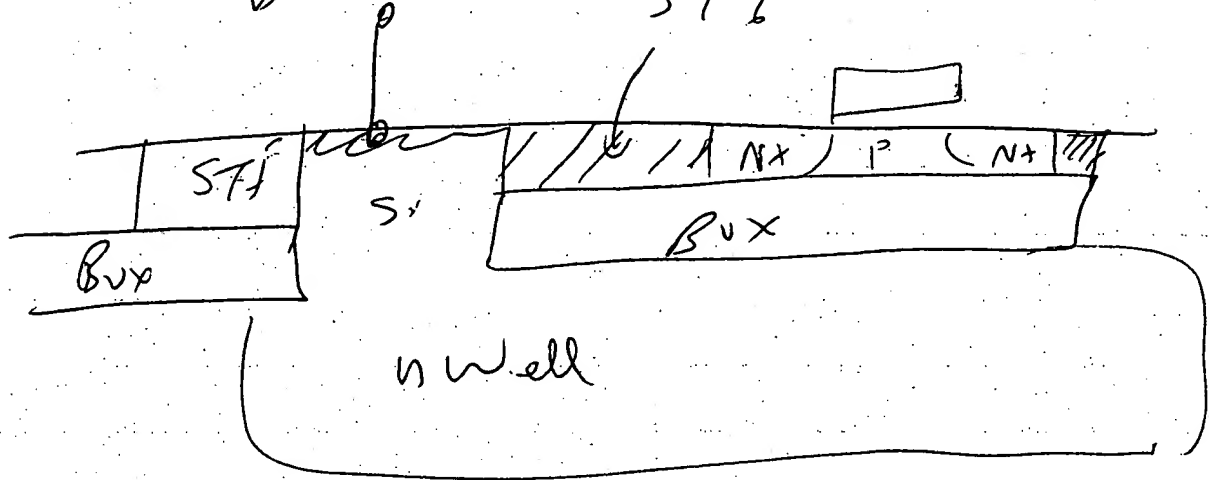 STI
STI
N+
P
N+
Si
BOX
BOX
n Well